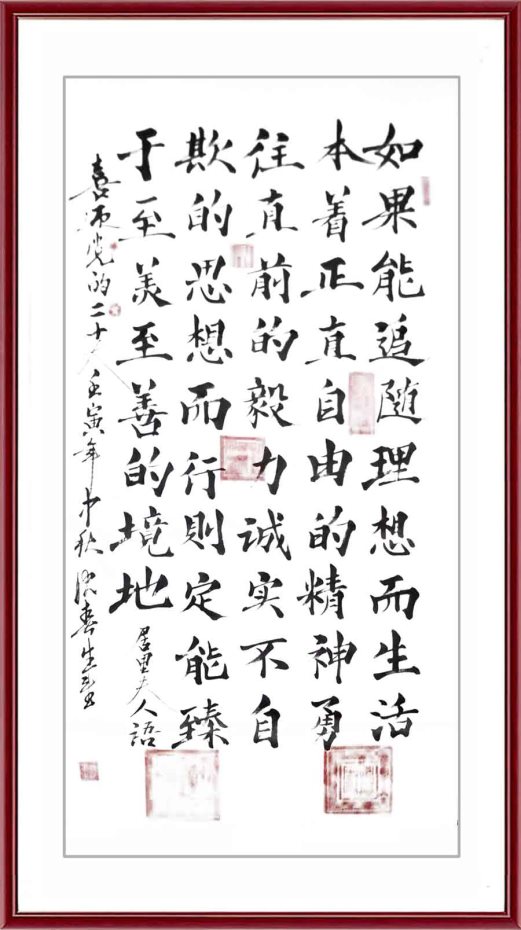 如果能追随理想而生活
本着正直自由的精神勇
往直前的毅力诚实不自
欺的思想而行則定能臻
于至美至善的境地
居里夫人語
喜迎党的二十大壬寅年中秋
春生書